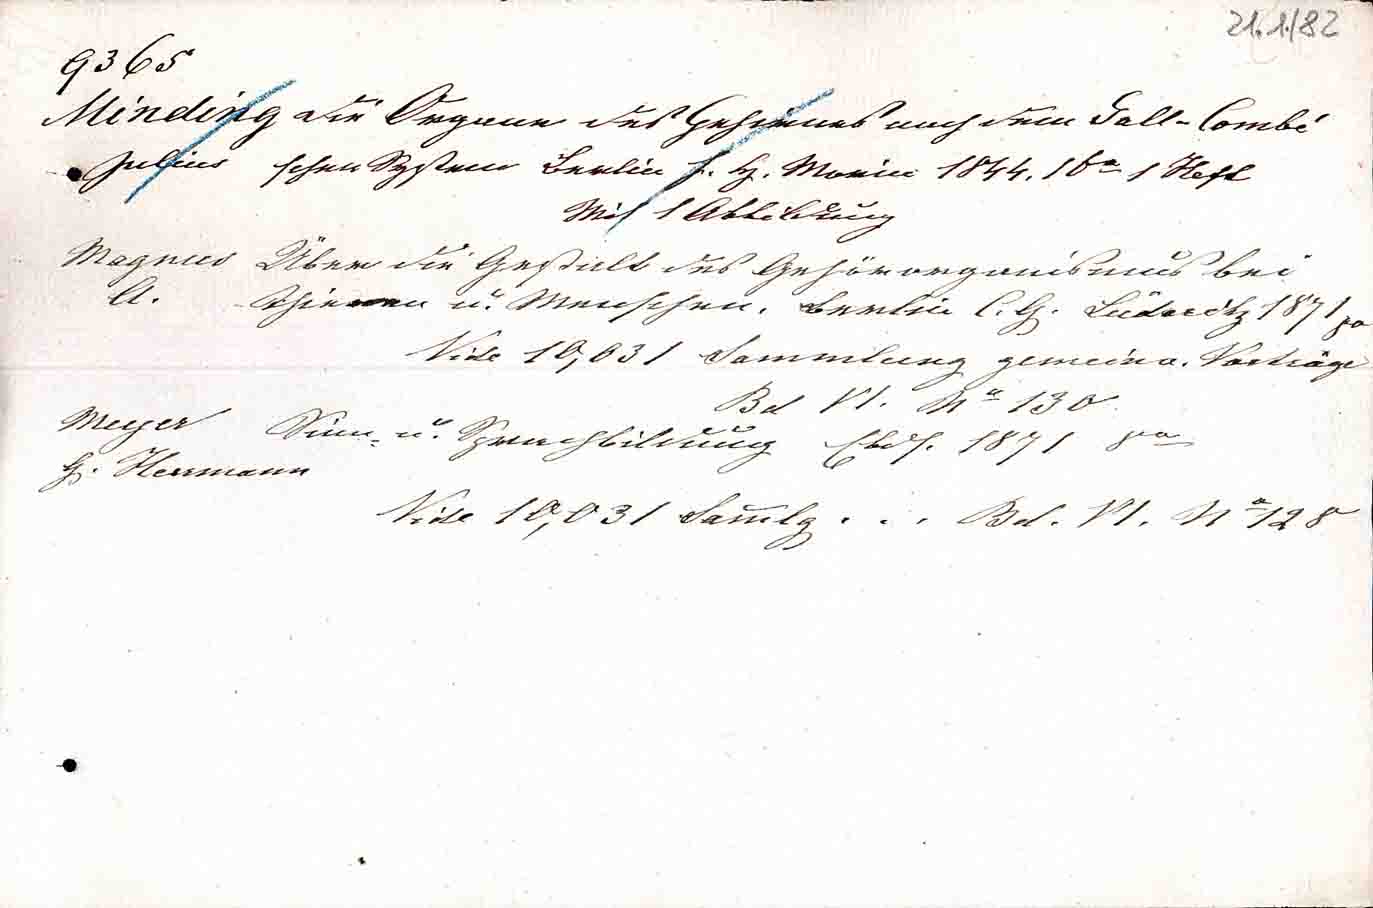 21.1./82
9365
Minding die Organe des Gehirnes nach dem Gall-Combé
Julius schen System Berlin F. H. Morin 1844. 16° 1 Heft
Mit 1 Abbildung
Magnus Über die Gestalt des Gehörorganismus bei
A. Thieren u. Menschen. Berlin C. G. Lüderitz 1871 8°
Vide 10,031 Sammlung gemeinv. Vorträge
Bd VI. No 130
Meyer Stimm- u. Sprachbildung Ebds. 1871 8°
G. Herrmann
Vide 10,031 Samlg . . . Bd. VI. No 128